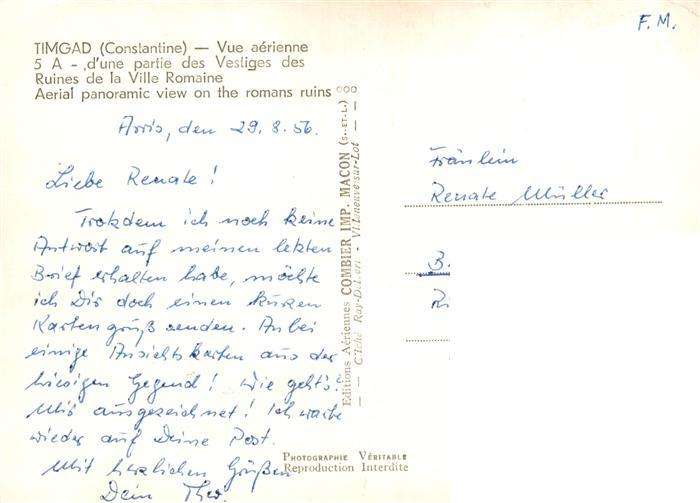 F. M.
TIMGAD (Constantine) — Vue aérienne
5 A - d'une partie des Vestiges des
Ruines de la Ville Romaine
Aerial panoramic view on the romans ruins ooo
Arris, den 29. 8. 56.
Liebe Renate!
Trotzdem ich noch keine
Antwort auf meinen letzten
Brief erhalten habe, möchte
ich Dir doch einen kurzen
Kartengruß senden. Anbei
einige Ansichtskarten aus der
hiesigen Gegend! Wie geht's?
Mir ausgezeichnet! Ich warte
wieder auf Deine Post.
Mit herzlichen Grüßen
Dein Theo.
Editions Aériennes COMBIER IMP. MACON (S.-ET-L.)
Cliché Ray-Delvert - Villeneuve-sur-Lot
PHOTOGRAPHIE VÉRITABLE
Reproduction Interdite
Fräulein
Renate Müller
B.